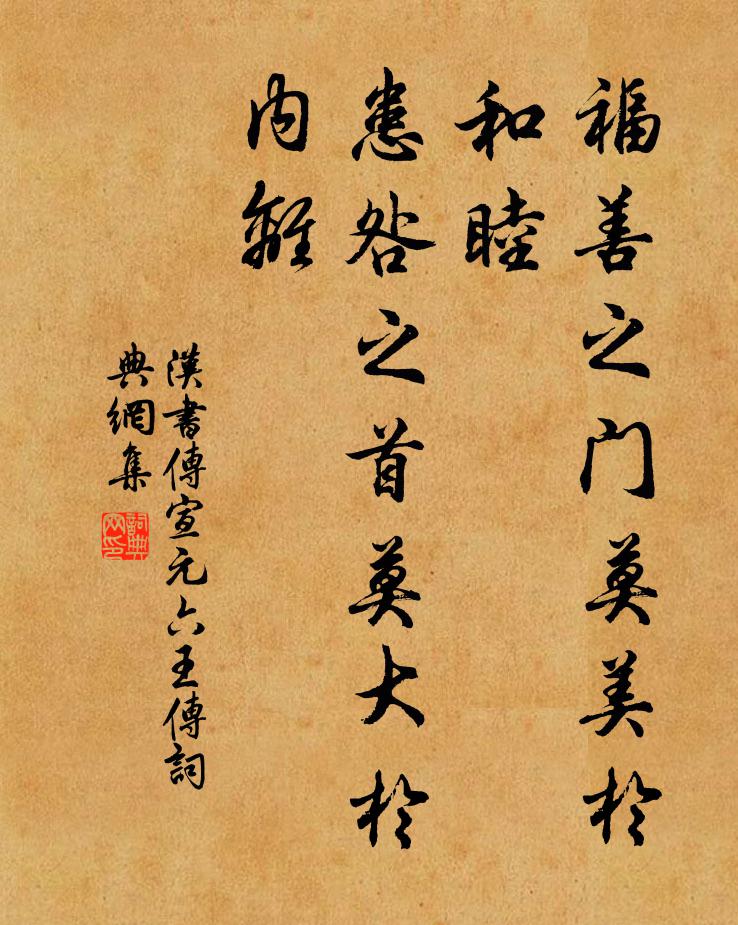 福善之门莫美於
和睦
患咎之首莫大於
内離
漢書傳宣元六王傳詞
典網集
詞典
网印